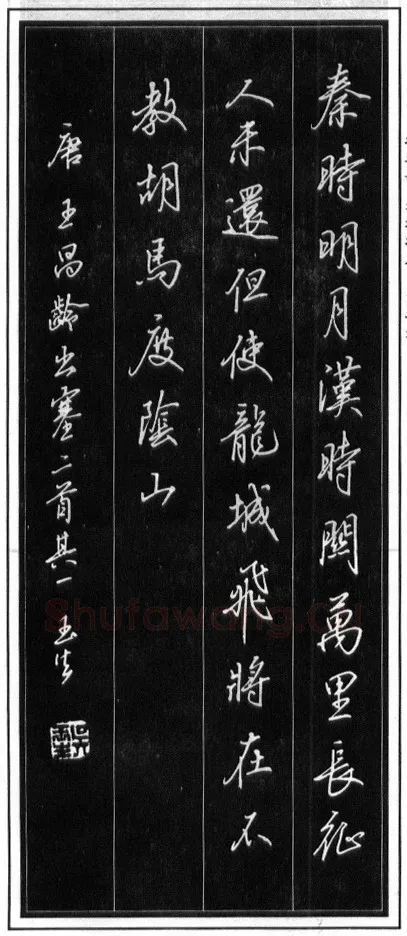 秦時明月漢時關萬里長征
人未還但使龍城飛將在不
教胡馬度陰山
唐王昌齡出塞二首其一玉生
Shufawang.cn